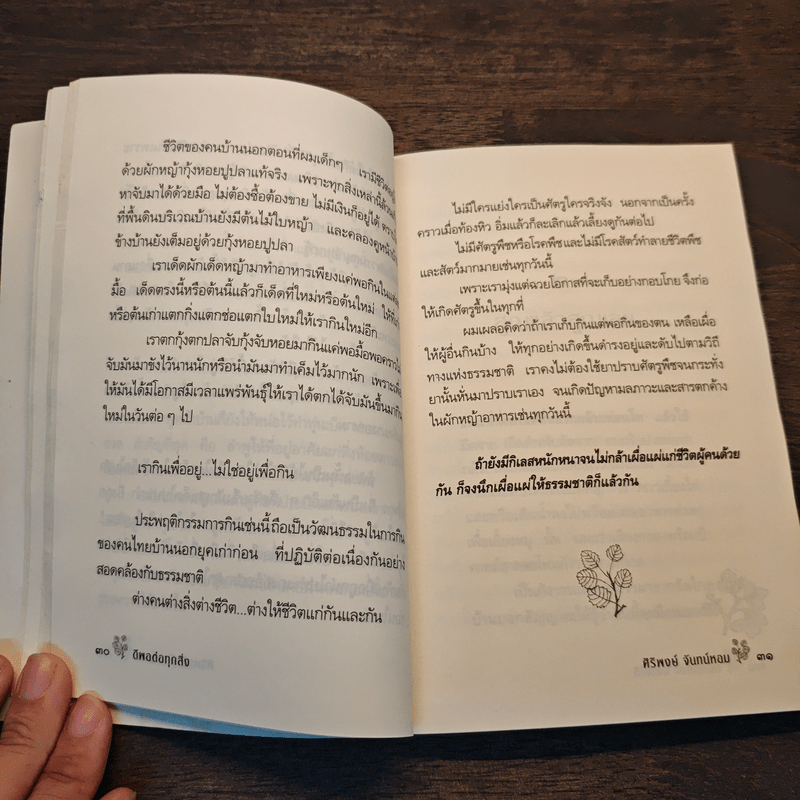 ชีวิตของคนบ้านนอกตอนที่ผมเด็กๆ เรามีชีวิต
ด้วยผักหญ้ากุ้งหอยปูปลาแท้จริง เพราะทุกสิ่งเหล่านี้ล้วน
หาจับมาได้ด้วยมือ ไม่ต้องซื้อต้องขาย ไม่มีเงินก็อยู่ได้
ที่พื้นดินบริเวณบ้านยังมีต้นไม้ใบหญ้า และคลองคูหน้า
ข้างบ้านยังเต็มอยู่ด้วยกุ้งหอยปูปลา
เราเด็ดผักเด็ดหญ้ามาทำอาหารเพียงแค่พอกินใน
มื้อ เด็ดตรงนี้หรือต้นนี้แล้วก็เด็ดที่ใหม่หรือต้นใหม่
หรือต้นเก่าแตกกิ่งแตกช่อแตกใบใหม่ให้เรากินใหม่อีก
เราตกกุ้งตกปลาจับกุ้งจับหอยมากินแค่พอมื้อพอคราว
จับมันมาขังไว้นานนักหรือนำมันมาทำเค็มไว้มากนัก เพราะ
ให้มันได้มีโอกาสมีเวลาแพร่พันธุ์ให้เราได้ตกได้จับมันขึ้นมากิน
ใหม่ในวันต่อ ๆ ไป
เรากินเพื่ออยู่...ไม่ใช่อยู่เพื่อกิน
ประพฤติกรรมการกินเช่นนี้ถือเป็นวัฒนธรรมในการกิน
ของคนไทยบ้านนอกยุคเก่าก่อน ที่ปฏิบัติต่อเนื่องกันอย่าง
สอดคล้องกับธรรมชาติ
ต่างคนต่างสิ่งต่างชีวิต...ต่างให้ชีวิตแก่กันและกัน
๓๐ ดีพอต่อทุกสิ่ง
ไม่มีใครแย่งใครเป็นศัตรูใครจริงจัง นอกจากเป็นครั้ง
คราวเมื่อท้องหิว อิ่มแล้วก็ละเลิกแล้วเลี้ยงดูกันต่อไป
ไม่มีศัตรูพืชหรือโรคพืช และไม่มีโรคสัตว์ทำลายชีวิตพืช
และสัตว์มากมายเช่นทุกวันนี้
เพราะเรามุ่งแต่ฉวยโอกาสที่จะเก็บอย่างกอบโกย จึงก่อ
ให้เกิดศัตรูขึ้นในทุกที่
ผมเผลอคิดว่าถ้าเราเก็บกินแต่พอกินของตน เหลือเผื่อ
ให้ผู้อื่นกินบ้าง ให้ทุกอย่างเกิดขึ้นดำรงอยู่และดับไปตามวิถี
ทางแห่งธรรมชาติ เราคงไม่ต้องใช้ยาปราบศัตรูพืชจนกระทั่ง
ยานั้นหันมาปราบเราเอง จนเกิดปัญหามลภาวะและสารตกค้าง
ในผักหญ้าอาหารเช่นทุกวันนี้
ถ้ายังมีกิเลสหนักหนาจนไม่กล้าเผื่อแผ่แก่ชีวิตผู้คนด้วย
กัน ก็จงนึกเผื่อแผ่ให้ธรรมชาติก็แล้วกัน
ศิริพงษ์ จันทน์หอม ๓๑